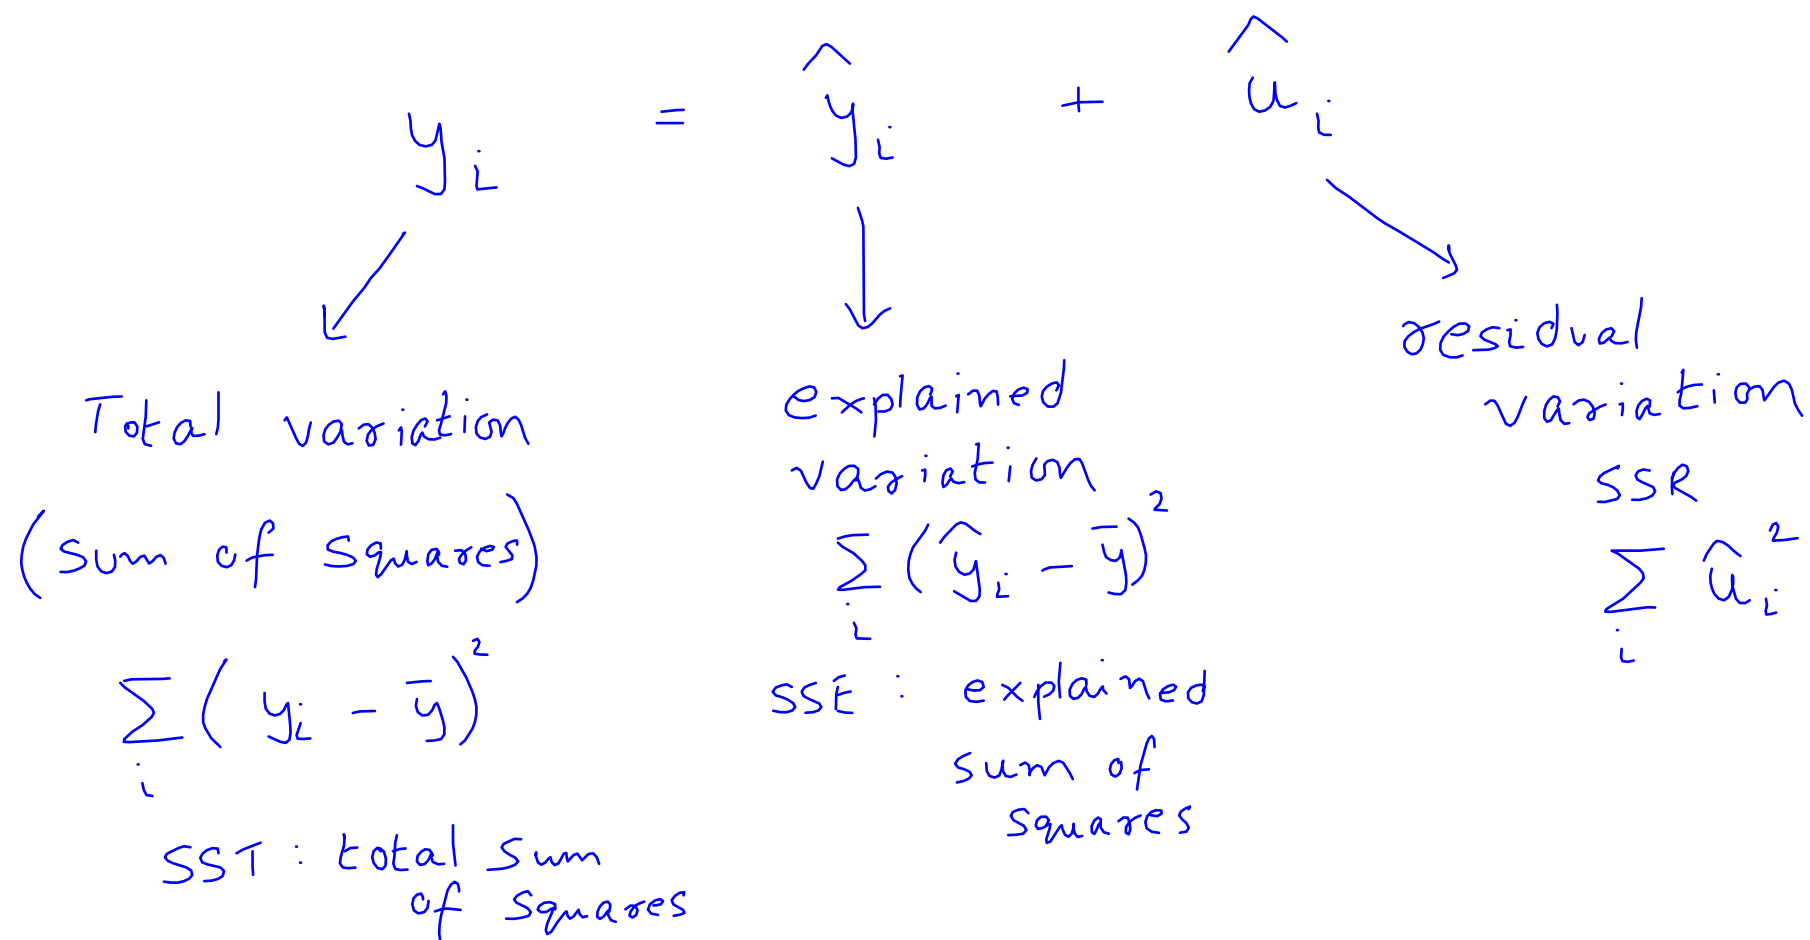 yᵢ = ŷᵢ + ûᵢ
Total variation
(sum of squares)
∑ᵢ (yᵢ − ȳ)²
SST : total sum
of squares
explained
variation
∑ᵢ (ŷᵢ − ȳ)²
SSE : explained
sum of
squares
residual
variation
SSR
∑ᵢ ûᵢ²